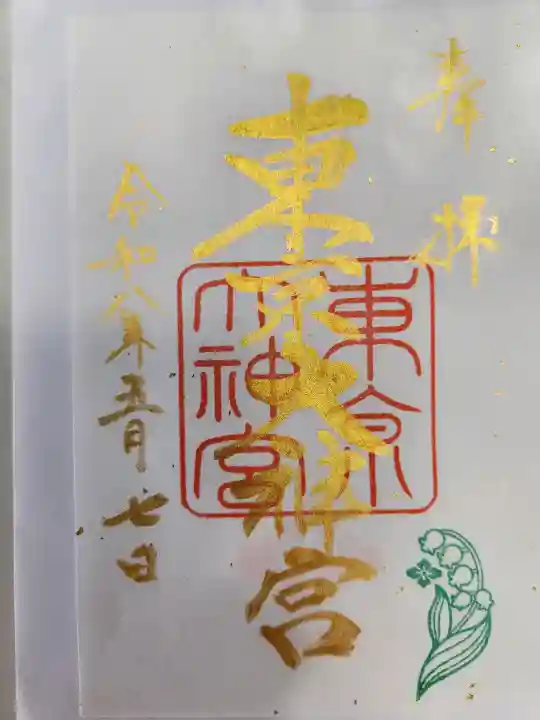 奉拝
東京大神宮
東京
大神宮
令和八年五月七日